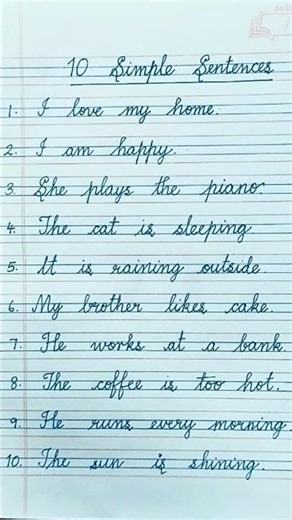 10 Simple Sentences
1. I love my home.
2. I am happy.
3. She plays the piano
4. The cat is sleeping.
5. It is raining outside.
6. My brother likes cake.
7. He works at a bank.
8. The coffee is too hot.
9. He runs every morning.
10. The sun is shining.